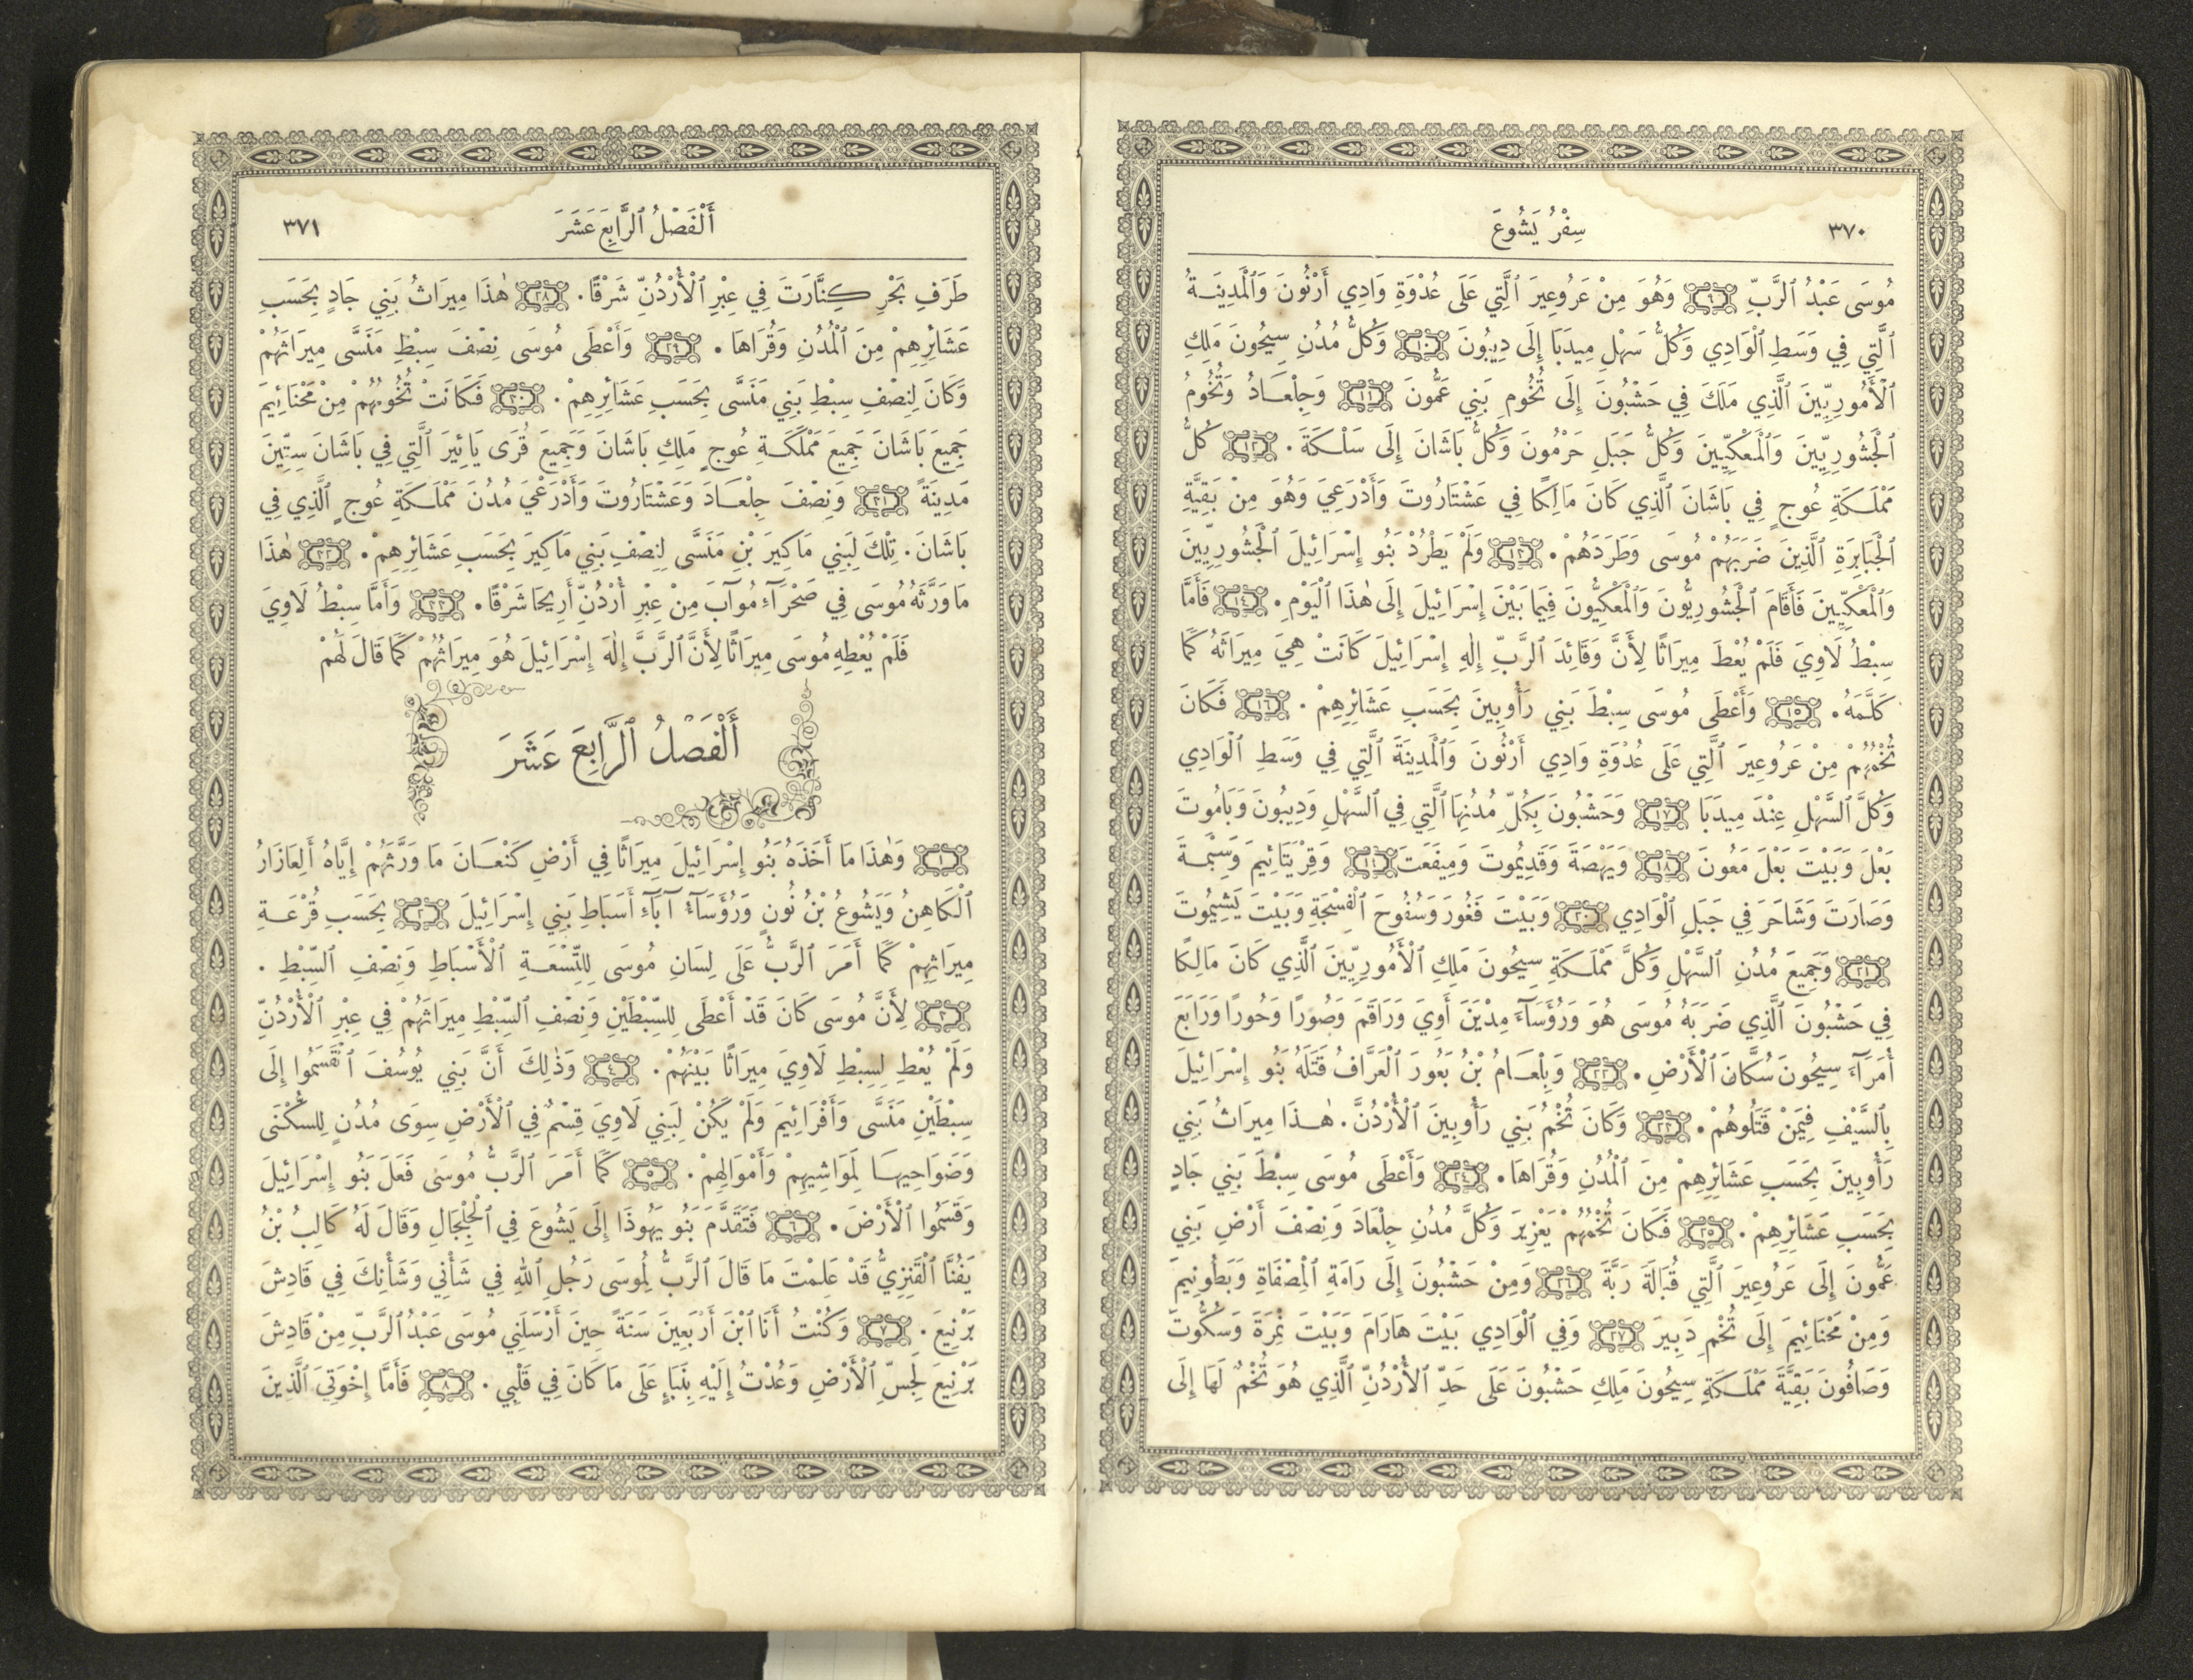 ٣٧٠
سِفْرُ يَشُوعَ
مُوسَى عَبْدُ ٱلرَّبِّ ٩ وَهُوَ مِنْ عَرُوعِيرَ ٱلَّتِي عَلَى عُدْوَةِ وَادِي أَرْنُونَ وَٱلْمَدِينَةُ
ٱلَّتِي فِي وَسَطِ ٱلْوَادِي وَكُلُّ سَهْلِ مِيدَبَا إِلَى دِيبُونَ ١٠ وَكُلُّ مُدُنِ سِيحُونَ مَلِكِ
ٱلْأَمُورِيِّينَ ٱلَّذِي مَلَكَ فِي حَشْبُونَ إِلَى تُخُومِ بَنِي عَمُّونَ ١١ وَجِلْعَادُ وَتُخُومُ
ٱلْجَشُورِيِّينَ وَٱلْمَعْكِيِّينَ وَكُلُّ جَبَلِ حَرْمُونَ وَكُلُّ بَاشَانَ إِلَى سَلْكَةَ. ١٢ كُلُّ
مَمْلَكَةِ عُوجٍ فِي بَاشَانَ ٱلَّذِي كَانَ مَالِكًا فِي عَشْتَارُوتَ وَأَدْرَعِيَ وَهُوَ مِنْ بَقِيَّةِ
ٱلْجَبَابِرَةِ ٱلَّذِينَ ضَرَبَهُمْ مُوسَى وَطَرَدَهُمْ. ١٣ وَلَمْ يَطْرُدْ بَنُو إِسْرَائِيلَ ٱلْجَشُورِيِّينَ
وَٱلْمَعْكِيِّينَ فَأَقَامَ ٱلْجَشُورِيُّونَ وَٱلْمَعْكِيُّونَ فِيمَا بَيْنَ إِسْرَائِيلَ إِلَى هٰذَا ٱلْيَوْمِ. ١٤ فَأَمَّا
سِبْطُ لَاوِيَ فَلَمْ يُعْطَ مِيرَاثًا لِأَنَّ وَقَائِدَ ٱلرَّبِّ إِلٰهِ إِسْرَائِيلَ كَانَتْ هِيَ مِيرَاثَهُ كَمَا
كَلَّمَهُ. ١٥ وَأَعْطَى مُوسَى سِبْطَ بَنِي رَأُوبِينَ بِحَسَبِ عَشَائِرِهِمْ. ١٦ فَكَانَ
تُخْمُهُمْ مِنْ عَرُوعِيرَ ٱلَّتِي عَلَى عُدْوَةِ وَادِي أَرْنُونَ وَٱلْمَدِينَةَ ٱلَّتِي فِي وَسَطِ ٱلْوَادِي
وَكُلَّ ٱلسَّهْلِ عِنْدَ مِيدَبَا ١٧ وَحَشْبُونَ بِكُلِّ مُدُنِهَا ٱلَّتِي فِي ٱلسَّهْلِ وَدِيبُونَ وَبَامُوتَ
بَعْلَ وَبَيْتَ بَعْلَ مَعُونَ ١٨ وَيَهْصَةَ وَقَدِيمُوتَ وَمِيفَعَتَ ١٩ وَقِرْيَتَائِيمَ وَسِبْمَةَ
وَصَارَتَ وَشَاحَرَ فِي جَبَلِ ٱلْوَادِي ٢٠ وَبَيْتَ فَغُورَ وَسُفُوحَ ٱلْفِسْجَةِ وَبَيْتَ يَشِيمُوتَ
٢١ وَجَمِيعَ مُدُنِ ٱلسَّهْلِ وَكُلَّ مَمْلَكَةِ سِيحُونَ مَلِكِ ٱلْأَمُورِيِّينَ ٱلَّذِي كَانَ مَالِكًا
فِي حَشْبُونَ ٱلَّذِي ضَرَبَهُ مُوسَى هُوَ وَرُؤَسَآءَ مِدْيَنَ أَوِيَ وَرَاقَمَ وَصُورًا وَحُورًا وَرَابَعَ
أُمَرَآءَ سِيحُونَ سُكَّانَ ٱلْأَرْضِ. ٢٢ وَبِلْعَامُ بْنُ بَعُورَ ٱلْعَرَّافُ قَتَلَهُ بَنُو إِسْرَائِيلَ
بِٱلسَّيْفِ فِيمَنْ قَتَلُوهُمْ. ٢٣ وَكَانَ تُخْمُ بَنِي رَأُوبِينَ ٱلْأُرْدُنَّ. هٰذَا مِيرَاثُ بَنِي
رَأُوبِينَ بِحَسَبِ عَشَائِرِهِمْ مِنَ ٱلْمُدُنِ وَقُرَاهَا. ٢٤ وَأَعْطَى مُوسَى سِبْطَ بَنِي جَادٍ
بِحَسَبِ عَشَائِرِهِمْ. ٢٥ فَكَانَ تُخْمُهُمْ يَعْزِيرَ وَكُلَّ مُدُنِ جِلْعَادَ وَنِصْفَ أَرْضِ بَنِي
عَمُّونَ إِلَى عَرُوعِيرَ ٱلَّتِي قُبَالَةَ رَبَّةَ ٢٦ وَمِنْ حَشْبُونَ إِلَى رَامَةِ ٱلْمِصْفَاةِ وَبَطُونِيمَ
وَمِنْ مَحْنَائِيمَ إِلَى تُخْمِ دَبِيرَ ٢٧ وَفِي ٱلْوَادِي بَيْتَ هَارَامَ وَبَيْتَ نِمْرَةَ وَسُكُّوتَ
وَصَافُونَ بَقِيَّةَ مَمْلَكَةِ سِيحُونَ مَلِكِ حَشْبُونَ عَلَى حَدِّ ٱلْأُرْدُنِّ ٱلَّذِي هُوَ تُخْمٌ لَهَا إِلَى
أَلْفَصْلُ ٱلرَّابِعَ عَشَرَ
٣٧١
طَرَفِ بَحْرِ كِنَّارَتَ فِي عِبْرِ ٱلْأُرْدُنِّ شَرْقًا. ٢٨ هٰذَا مِيرَاثُ بَنِي جَادٍ بِحَسَبِ
عَشَائِرِهِمْ مِنَ ٱلْمُدُنِ وَقُرَاهَا. ٢٩ وَأَعْطَى مُوسَى نِصْفَ سِبْطِ مَنَسَّى مِيرَاثَهُمْ
وَكَانَ لِنِصْفِ سِبْطِ بَنِي مَنَسَّى بِحَسَبِ عَشَائِرِهِمْ. ٣٠ فَكَانَتْ تُخُومُهُمْ مِنْ مَحْنَائِيمَ
جَمِيعَ بَاشَانَ جَمِيعَ مَمْلَكَةِ عُوجٍ مَلِكِ بَاشَانَ وَجَمِيعَ قُرَى يَائِيرَ ٱلَّتِي فِي بَاشَانَ سِتِّينَ
مَدِينَةً ٣١ وَنِصْفَ جِلْعَادَ وَعَشْتَارُوتَ وَأَدْرَعْيَ مُدُنَ مَمْلَكَةِ عُوجٍ ٱلَّذِي فِي
بَاشَانَ. تِلْكَ لِبَنِي مَاكِيرَ بْنِ مَنَسَّى لِنِصْفِ بَنِي مَاكِيرَ بِحَسَبِ عَشَائِرِهِمْ. ٣٢ هٰذَا
مَا وَرَّثَهُ مُوسَى فِي صَحْرَآءِ مُوآبَ مِنْ عِبْرِ أُرْدُنِّ أَرِيحَا شَرْقًا. ٣٣ وَأَمَّا سِبْطُ لَاوِيَ
فَلَمْ يُعْطِهِ مُوسَى مِيرَاثًا لِأَنَّ ٱلرَّبَّ إِلٰهَ إِسْرَائِيلَ هُوَ مِيرَاثُهُمْ كَمَا قَالَ لَهُمْ
أَلْفَصْلُ ٱلرَّابِعَ عَشَرَ
١ وَهٰذَا مَا أَخَذَهُ بَنُو إِسْرَائِيلَ مِيرَاثًا فِي أَرْضِ كَنْعَانَ مَا وَرَّثَهُمْ إِيَّاهُ أَلِعَازَارُ
ٱلْكَاهِنُ وَيَشُوعُ بْنُ نُونٍ وَرُؤَسَآءُ آبَآءِ أَسْبَاطِ بَنِي إِسْرَائِيلَ ٢ بِحَسَبِ قُرْعَةِ
مِيرَاثِهِمْ كَمَا أَمَرَ ٱلرَّبُّ عَلَى لِسَانِ مُوسَى لِلتِّسْعَةِ ٱلْأَسْبَاطِ وَنِصْفِ ٱلسِّبْطِ.
٣ لِأَنَّ مُوسَى كَانَ قَدْ أَعْطَى لِلسِّبْطَيْنِ وَنِصْفِ ٱلسِّبْطِ مِيرَاثَهُمْ فِي عِبْرِ ٱلْأُرْدُنِّ
وَلَمْ يُعْطِ لِسِبْطِ لَاوِيَ مِيرَاثًا بَيْنَهُمْ. ٤ وَذٰلِكَ أَنَّ بَنِي يُوسُفَ ٱنْقَسَمُوا إِلَى
سِبْطَيْنِ مَنَسَّى وَأَفْرَائِيمَ وَلَمْ يَكُنْ لِبَنِي لَاوِيَ قِسْمٌ فِي ٱلْأَرْضِ سِوَى مُدُنٍ لِلسُّكْنَى
وَضَوَاحِيهَا لِمَوَاشِيهِمْ وَأَمْوَالِهِمْ. ٥ كَمَا أَمَرَ ٱلرَّبُّ مُوسَى فَعَلَ بَنُو إِسْرَائِيلَ
وَقَسَمُوا ٱلْأَرْضَ. ٦ فَتَقَدَّمَ بَنُو يَهُوذَا إِلَى يَشُوعَ فِي ٱلْجِلْجَالِ وَقَالَ لَهُ كَالِبُ بْنُ
يَفُنَّا ٱلْقَنِزِيُّ قَدْ عَلِمْتَ مَا قَالَ ٱلرَّبُّ لِمُوسَى رَجُلِ ٱللهِ فِي شَأْنِي وَشَأْنِكَ فِي قَادِشَ
بَرْنِيعَ. ٧ وَكُنْتُ أَنَا ٱبْنَ أَرْبَعِينَ سَنَةً حِينَ أَرْسَلَنِي مُوسَى عَبْدُ ٱلرَّبِّ مِنْ قَادِشَ
بَرْنِيعَ لِجَسِّ ٱلْأَرْضِ وَعُدْتُ إِلَيْهِ بِنَبَإٍ عَلَى مَا كَانَ فِي قَلْبِي. ٨ فَأَمَّا إِخْوَتِيَ ٱلَّذِينَ